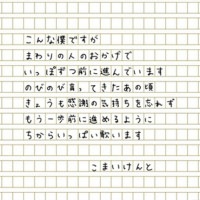 こんな僕ですが
まわりの人のおかげで
いっぽずつ前に進んでいます
のびのび育ってきたあの頃
きょうも感謝の気持ちを忘れず
もう一歩前に進めるように
ちからいっぱい歌います
こまいけんと